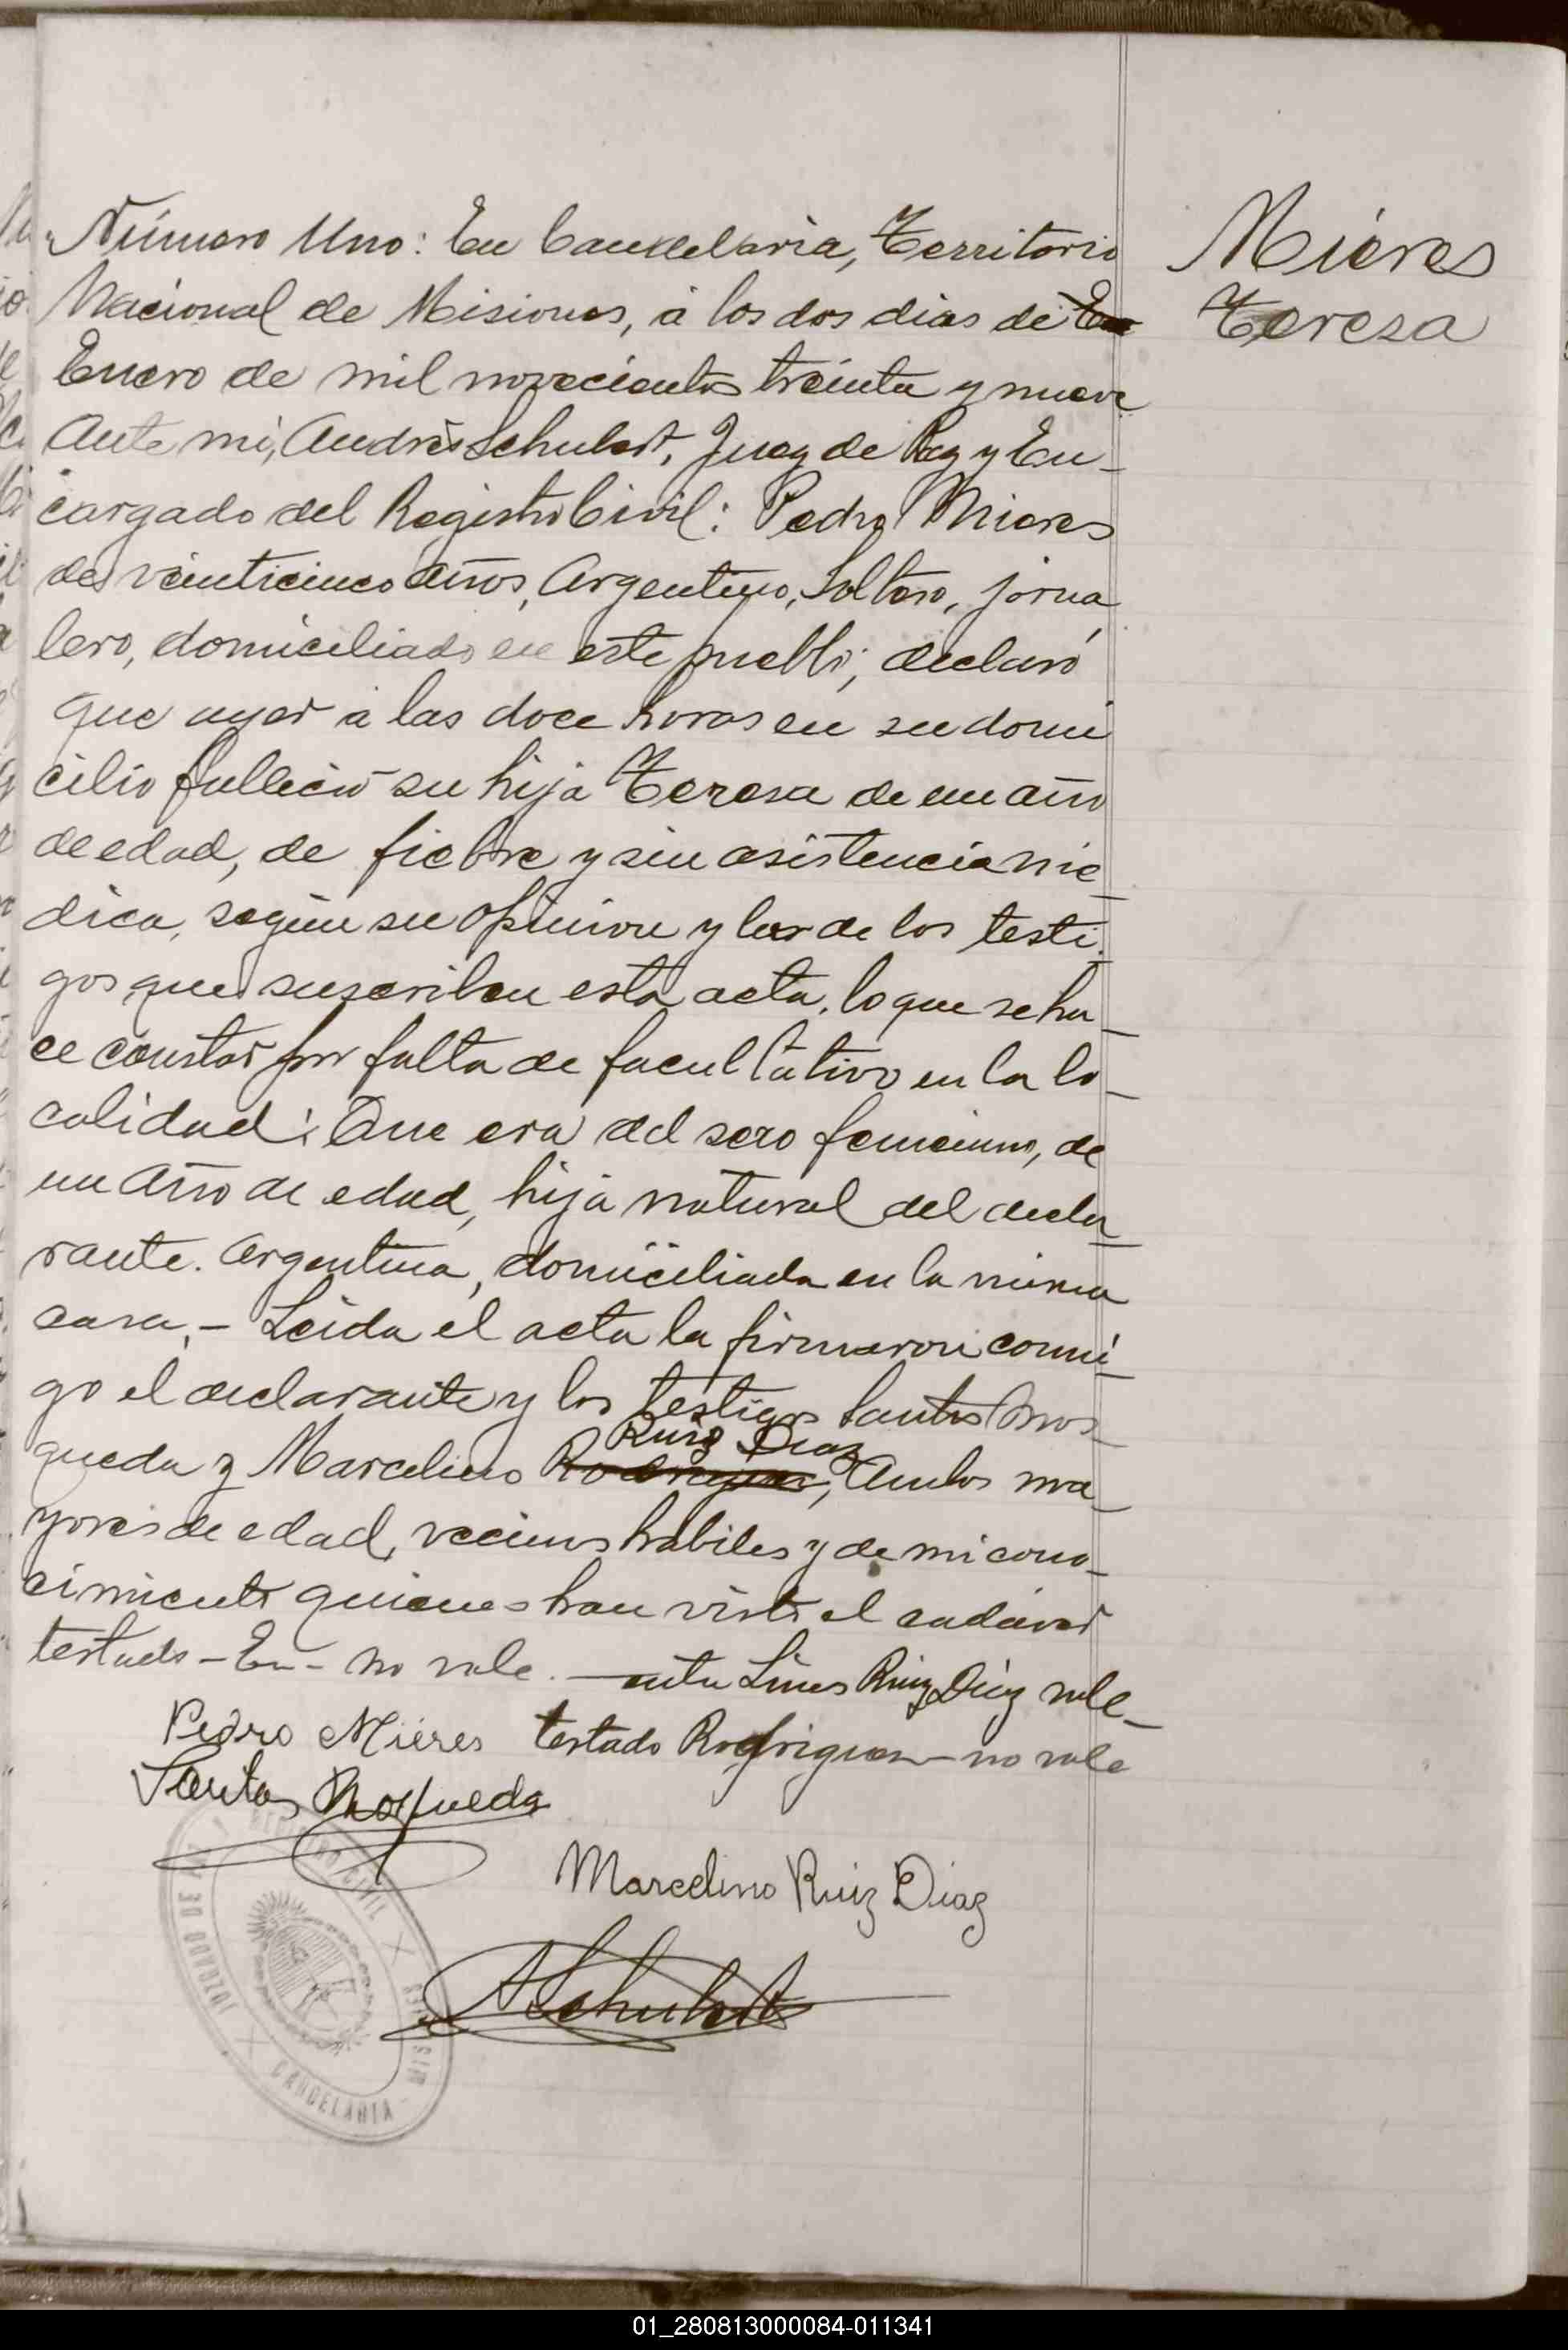 Número Uno: En Candelaria, Territorio
Nacional de Misiones, á los dos dias de En
Enero de mil novecientos treinta y nueve
Ante mi, Andrés Schubert, Juez de Paz y En-
cargado del Registro Civil: Pedro Mieres
de veinticinco años, Argentino, Soltero, jorna
lero, domiciliado en este pueblo; declaró
que ayer á las doce horas en su domi
cilio falleció su hija Teresa de un año
de edad, de fiebre y sin asistencia me
dica, según su opinion y la de los testi
gos que suscriben esta acta, lo que se ha-
ce constar por falta de facultativo en la lo-
calidad; Que era del sexo femenino, de
un año de edad, hija natural del decla
rante. Argentina, domiciliada en la misma
casa.- Leida el acta la firmaron conmi-
go el declarante y los testigos Santos Mos-
Ruiz Diaz
queda y Marcelino Rodriguez, Ambos ma-
yores de edad, vecinos habiles y de mi cono-
cimiento quienes han visto el cadáver
testado - En - no vale. - entre Lines Ruiz Diaz vale-
Pedro Mieres testado Rodriguez - no vale
Santos Mosqueda
Marcelino Ruiz Diaz
ASchubert
JUZGADO DE PAZ Y REGISTRO CIVIL
CANDELARIA
MISIONES
Mieres
Teresa
01_280813000084-011341